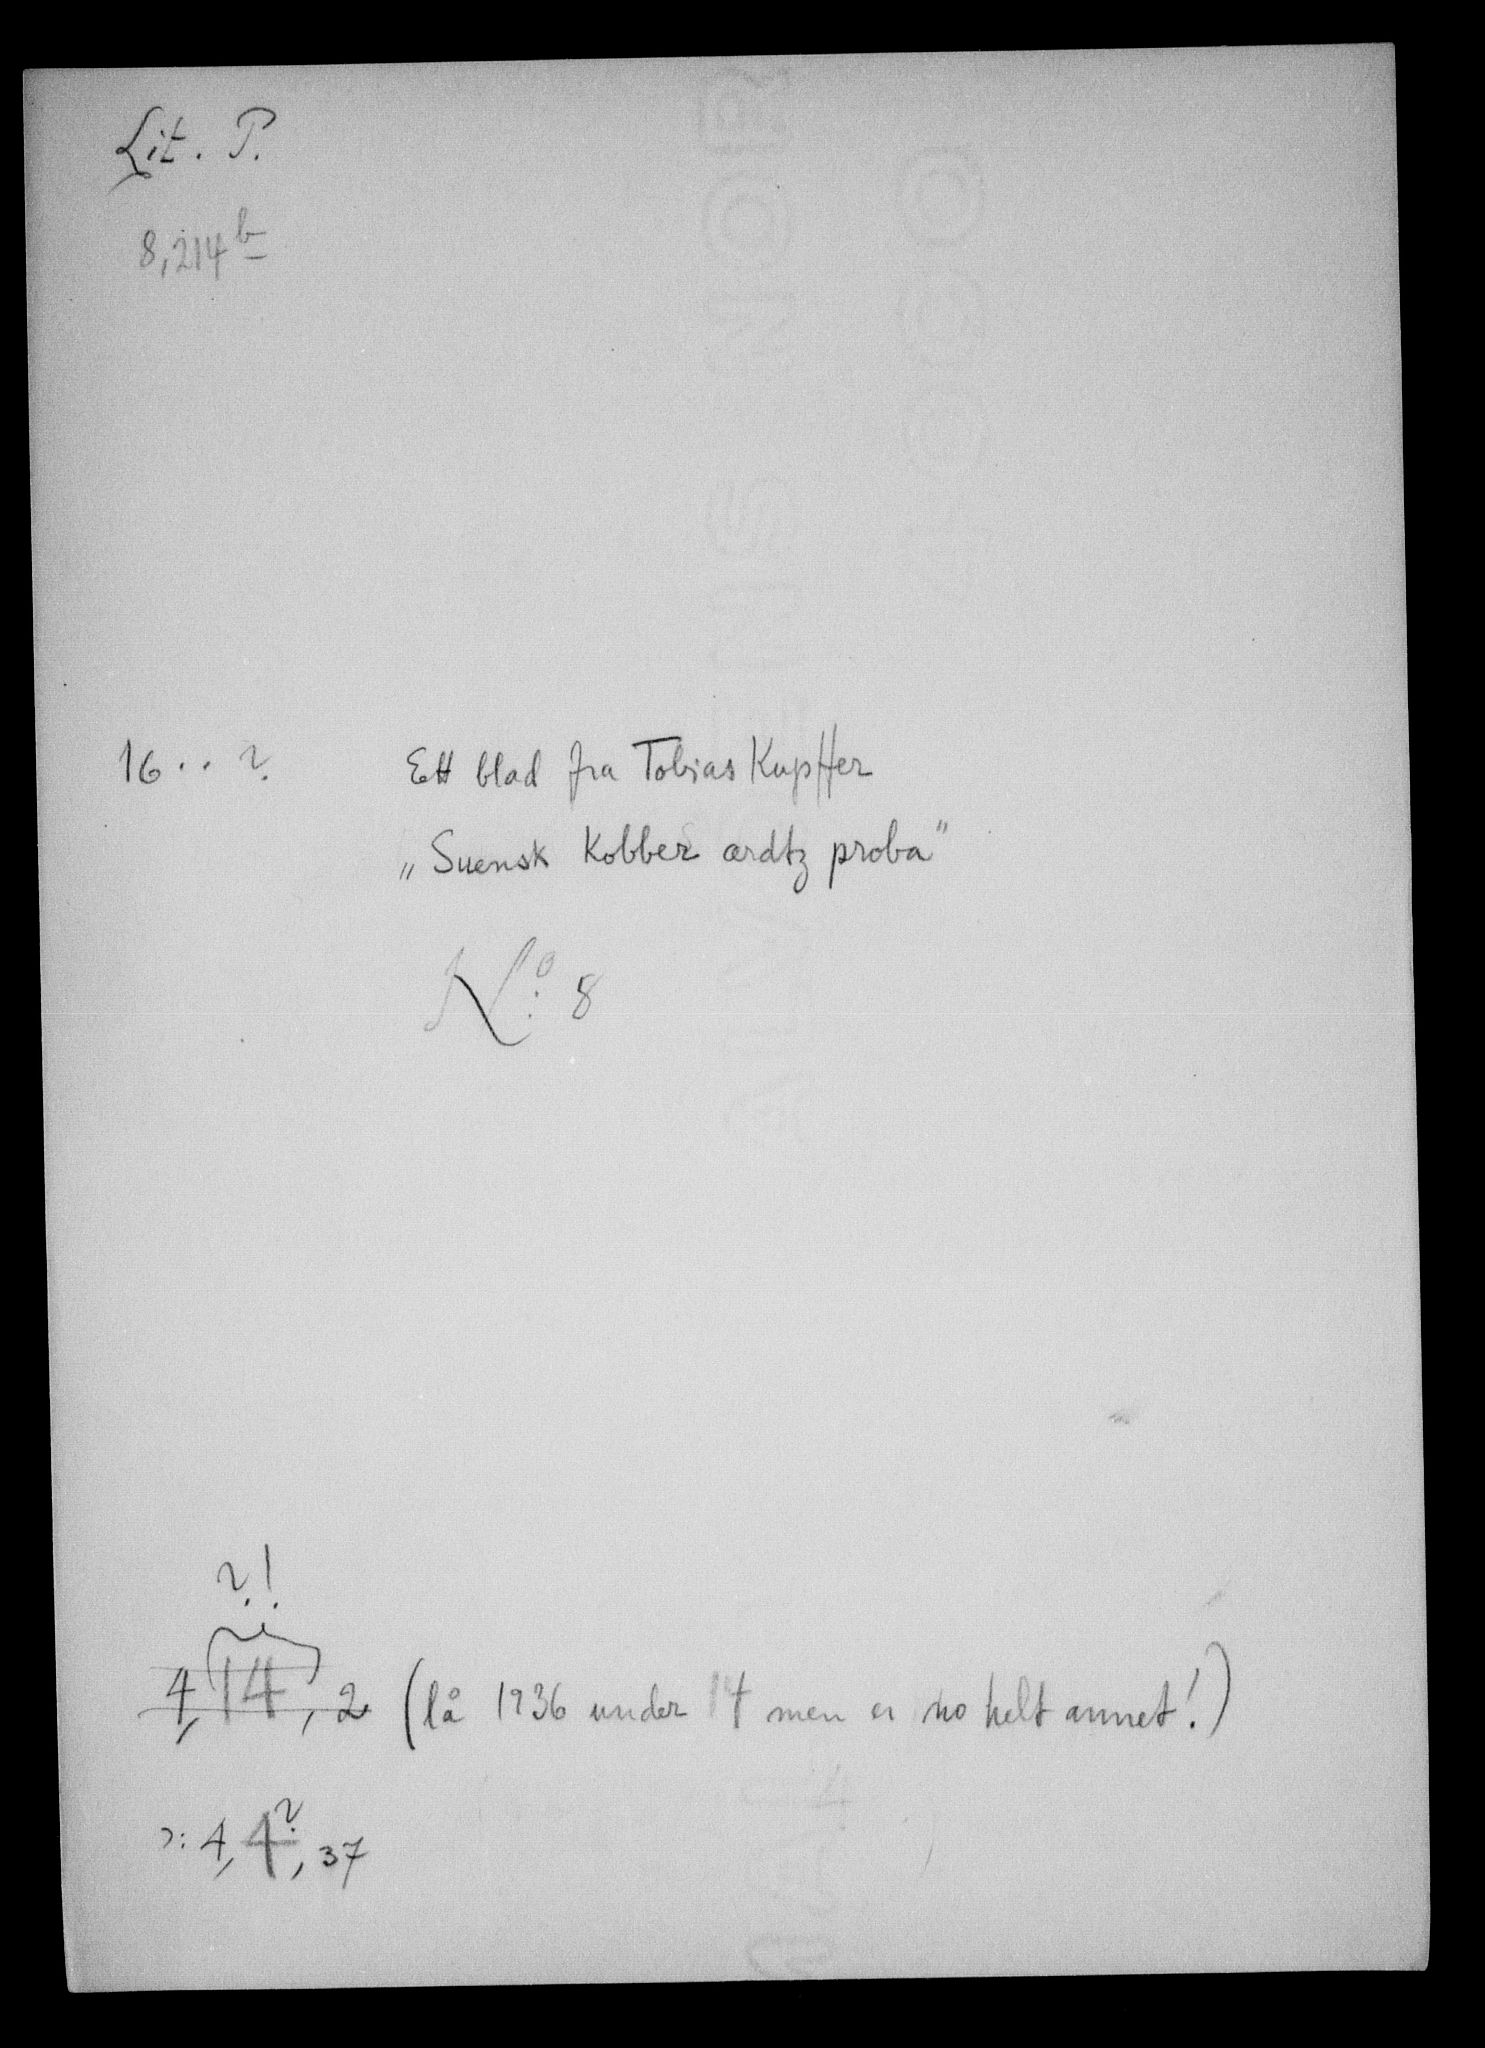 Lit. P.
8,214 b
16 . . ?
Ett blad fra Tobias Kupffer
„Suensk Kobber ardtz proba”
No: 8
?!
4,14, 2 (lå 1936 under 14 men er no helt annet!)
ɔ: 4,4?, 37